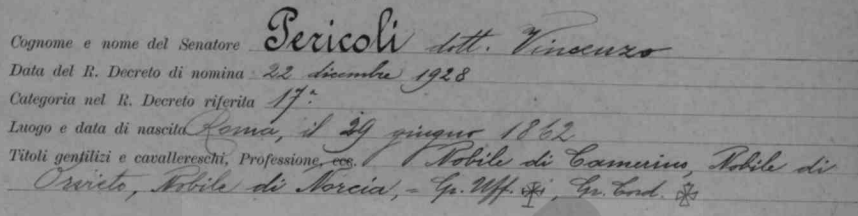 Cognome e nome del Senatore Pericoli dott. Vincenzo
Data del R. Decreto di nomina 22 dicembre 1928
Categoria nel R. Decreto riferita 17ª
Luogo e data di nascita Roma, il 29 giugno 1862
Titoli gentilizi e cavallereschi, Professione, ecc. Nobile di Camerino, Nobile di
Orvieto, Nobile di Norcia, - Gr. Uff. , Gr. Cord.